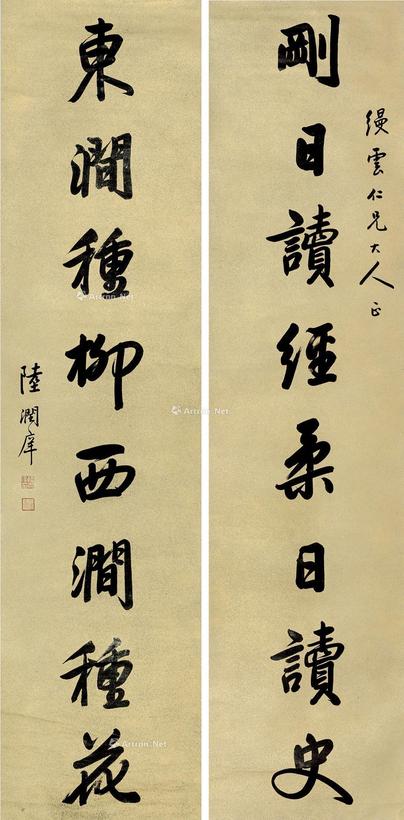 縵雲仁兄大人正
剛日讀經柔日讀史
東澗種柳西澗種花
陸潤庠
Artron.Net
Artron.Net
Artron.Net